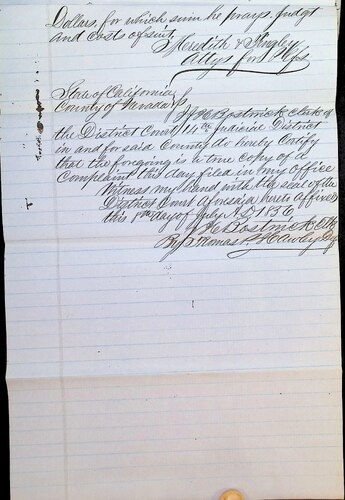 Dollars, for which sum he prays Judgt
and costs of suit.
Meredith &
Attys for Plfs
State of California
County of Nevada
Bostwick Clerk of
the District Court 14th Judicial District
in and for said County do hereby Certify
that the foregoing is a true Copy of a
Complaint this day filed in my Office
Witness my hand with the seal of the
District Court Aforesaid hereto affixed
this 8th day of July A.D 1856
Bostwick Clk
By Thomas P Hawley Dy